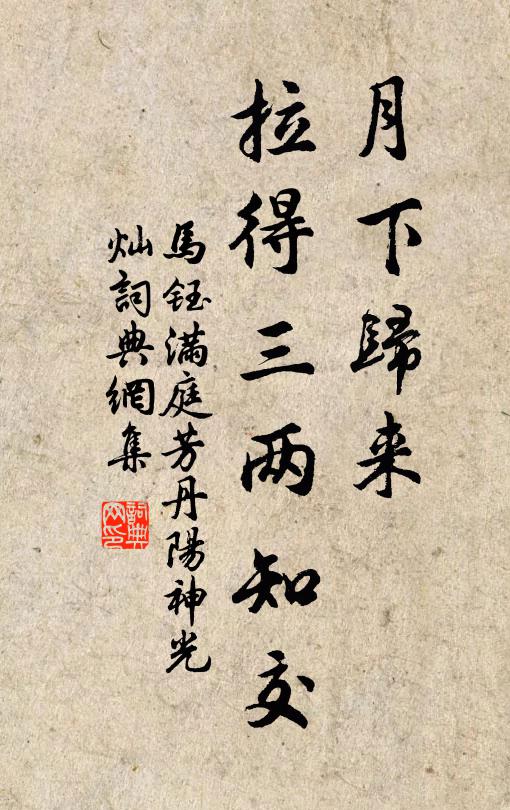 月下歸来
拉得三两知交
馬鈺满庭芳丹陽神光
灿詞典網集
詞典
网印